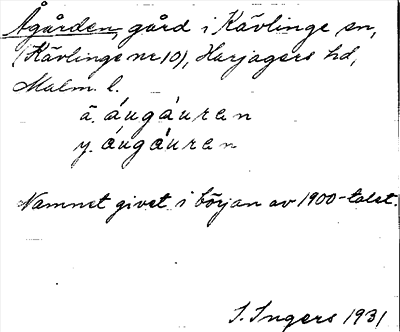 Ågården, gård i Kävlinge sn,
(Kävlinge nr 10), Harjagers hd,
Malm. l.
ä. áugáuren
y. áugáuren
Namnet givet i början av 1900-talet.
I. Ingers 1931